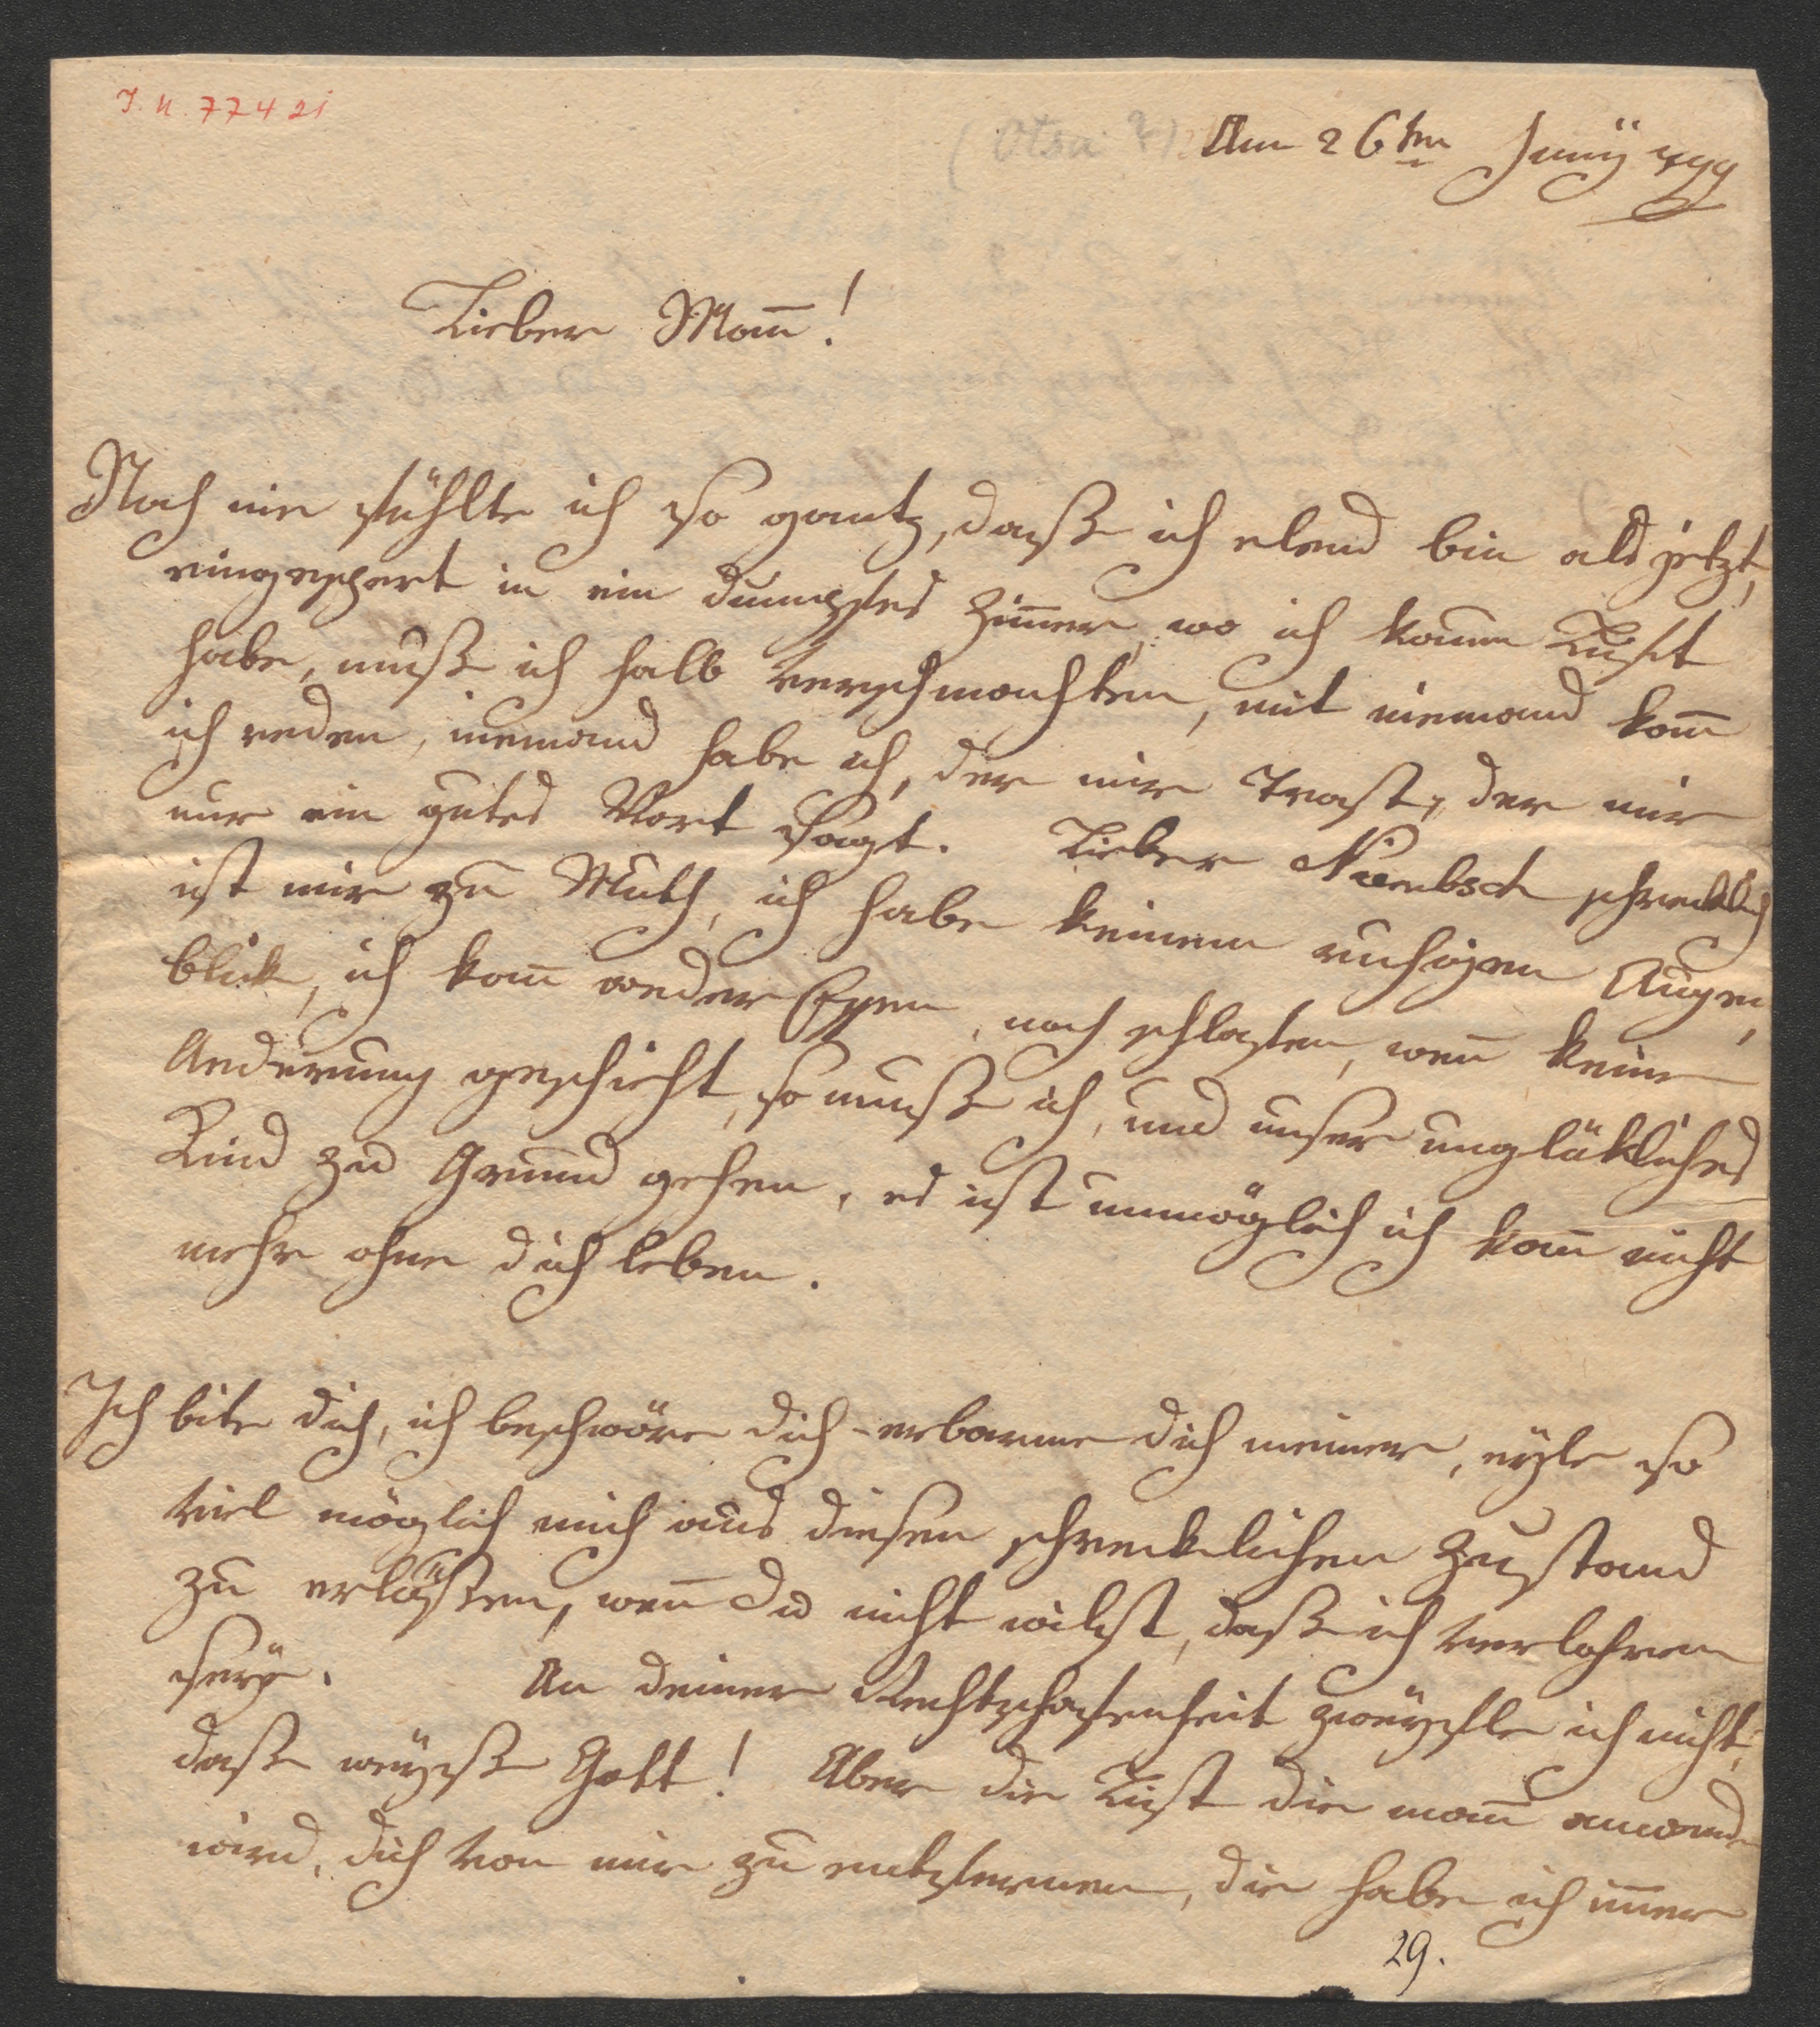 I. N. 77421
(Ofen ?) Am 26ten Junÿ 799
Lieber Mann!
Noch nie fühlte ich so gantz, daß ich elend bin als jetzt,
eingespert in ein dumpfes Zimmer, wo ich kaum Luft
habe, muß ich halb verschmachten, mit niemand kann
ich reden, niemand habe ich, der mir Trost, der mir
nur ein gutes Wort sagt. Lieber Niembsch schrecklich
ist mir zu Muth, ich habe keinen ruhigen Augen
blick, ich kann weder Essen, noch schlafen, wenn keine
Anderung geschieht, so muß ich, und unser unglükliches
Kind zu Grund gehen, es ist unmöglich ich kann nicht
mehr ohne dich leben.
Ich bite dich, ich beschwöre dich - erbarme dich meiner, eyle so
viel möglich mich aus diesen schrecklichen Zustand
zu erlößen, wenn du nicht wilst, daß ich verlohren
seÿ. An deiner Rechtschafenheit zweyfle ich nicht,
daß weyß Gott! Aber die List die mann anwend
wird, dich von mir zu entfernen, die habe ich immer
29.